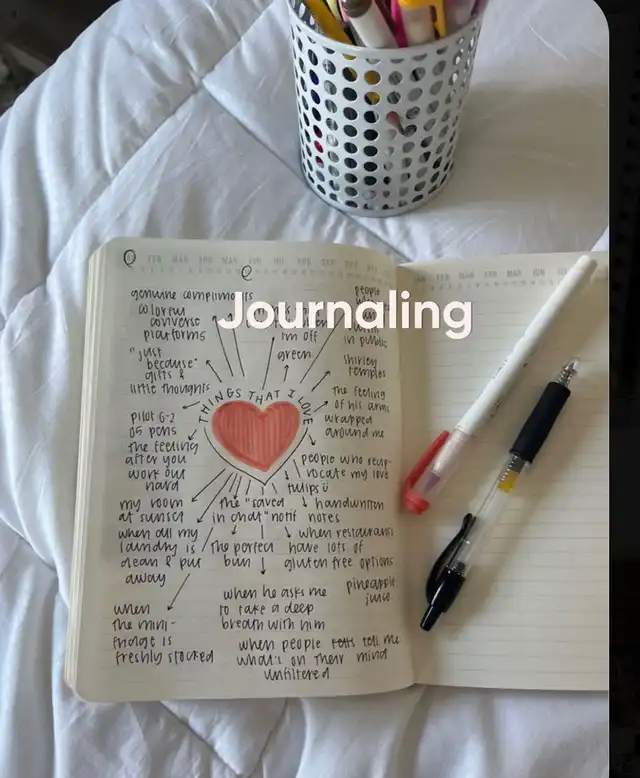 Journaling
THINGS THAT I LOVE
genuine compliments
colorful
converse
platforms
"just
because"
gifts &
little thoughts
pilot G-2
05 pens
the feeling
after you
work out
hard
my room
at sunset
when all my
laundry is
clean & put
away
when
the mini-
fridge is
freshly stocked
im off
green
people
in public
shirley
temples
the feeling
of his arms
wrapped
around me
people who recip-
rocate my love
tulips
the "saved
in chat" notif
handwritten
notes
the perfect
bun
when restaurants
have lots of
gluten free options
when he asks me
to take a deep
breath with him
pineapple
juice
when people tell me
what's on their mind
unfiltered